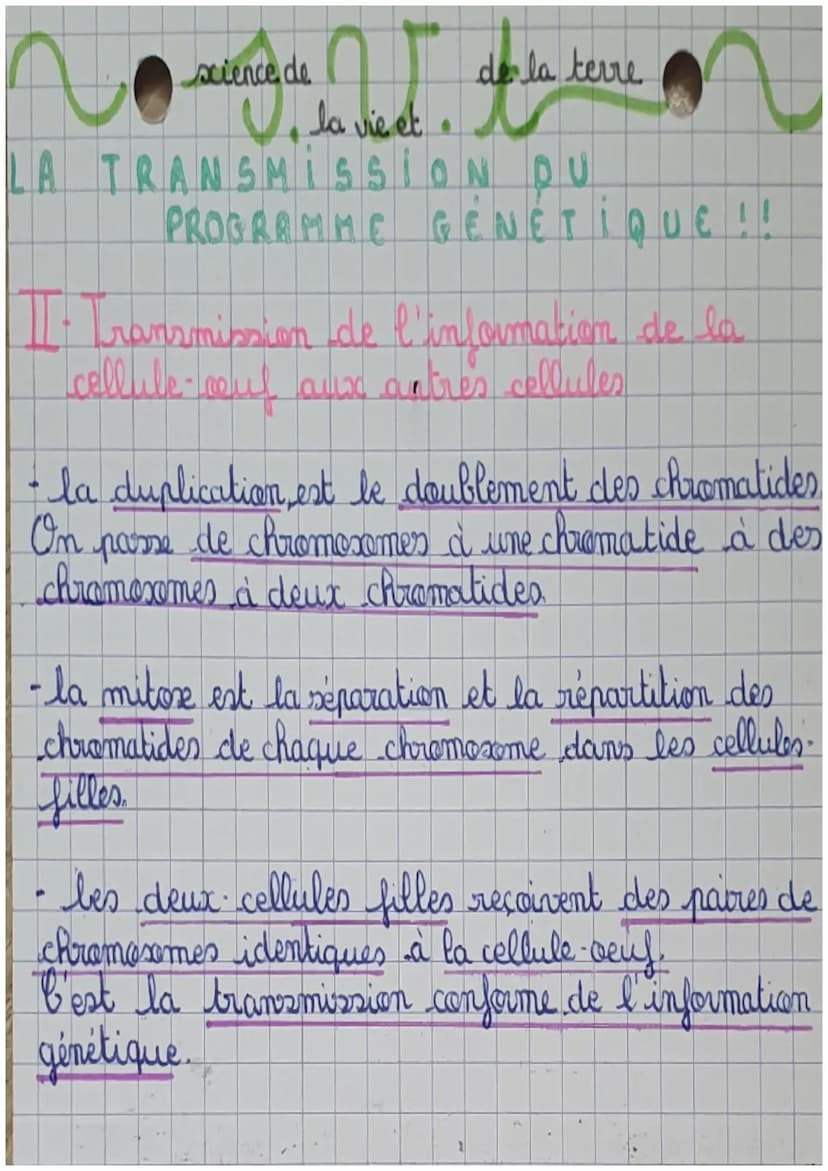 S.V.t
science de la vie et de la terre
LA TRANSMISSION DU
PROGRAMME GÉNÉTIQUE !!
II. Transmission de l'information de la
cellule-oeuf aux autres cellules
- la duplication, est le doublement des chromatides
On passe de chromosomes à une chromatide à des
chromosomes à deux chromatides.
- la mitose est la séparation et la répartition des
chromatides de chaque chromosome dans les cellules-
filles.
- les deux cellules filles reçoivent des paires de
chromosomes identiques à la cellule-oeuf.
C'est la transmission conforme de l'information
génétique.